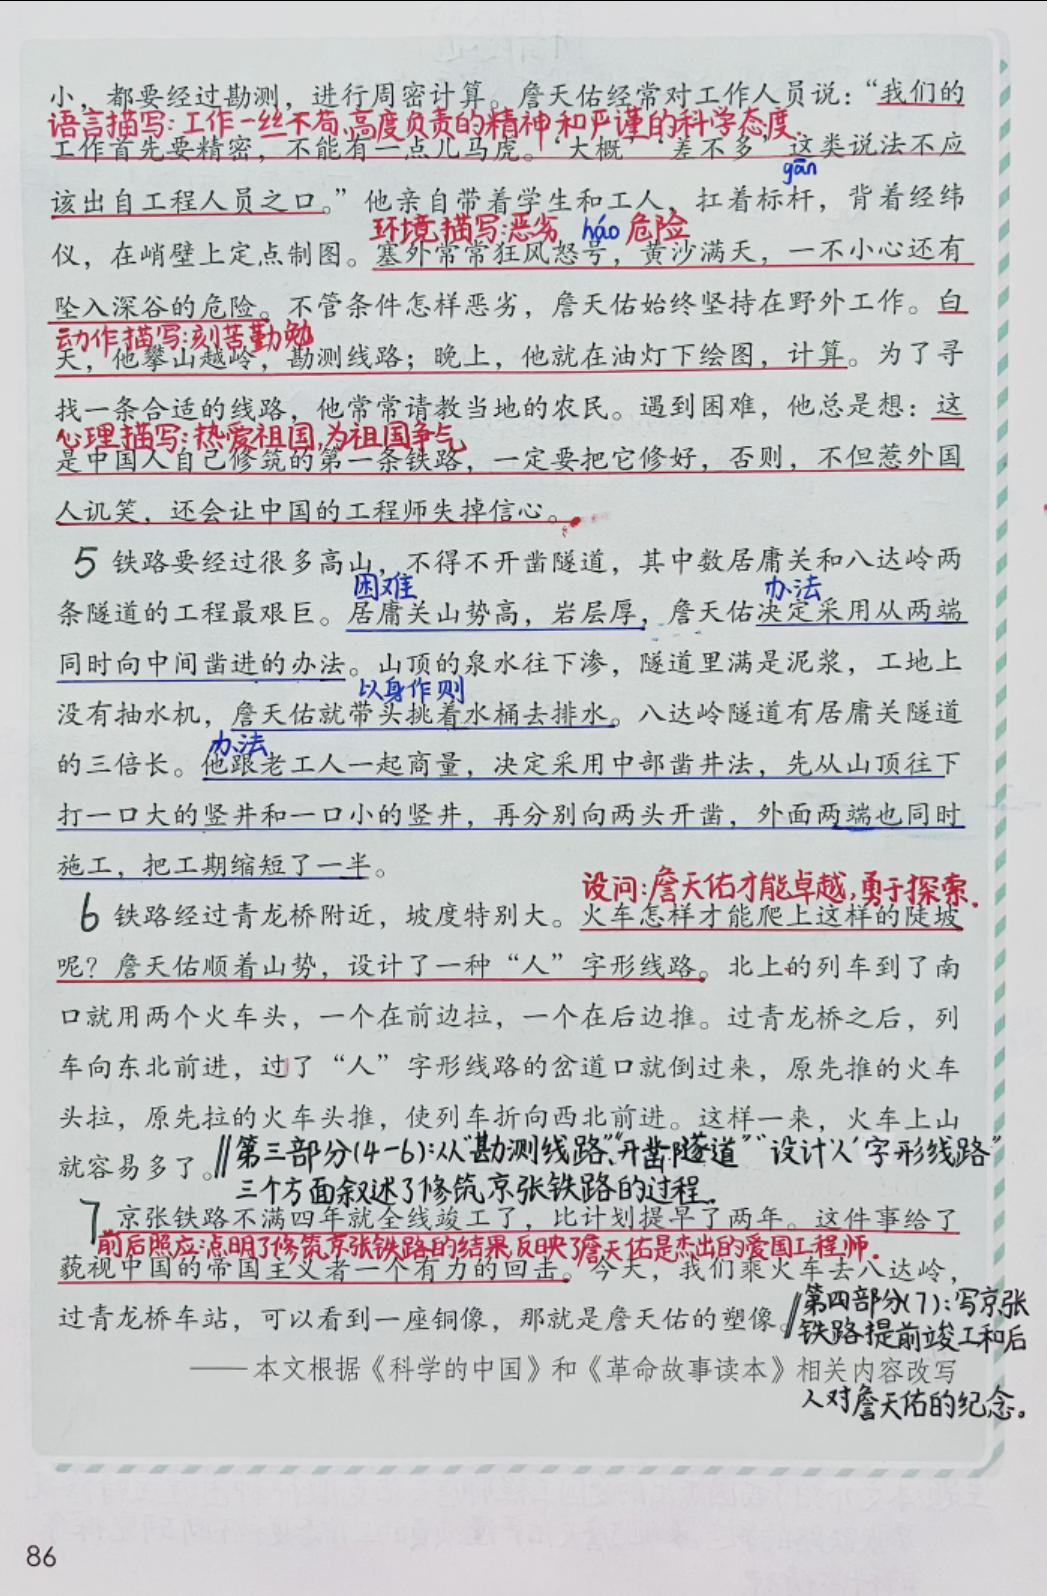 小，都要经过勘测，进行周密计算。詹天佑经常对工作人员说：“我们的
语言描写:工作一丝不苟、高度负责的精神和严谨的科学态度.
工作首先要精密，不能有一点儿马虎。‘大概’‘差不多’这类说法不应
gān
该出自工程人员之口。”他亲自带着学生和工人，扛着标杆，背着经纬
环境描写:恶劣 háo 危险
仪，在峭壁上定点制图。塞外常常狂风怒号，黄沙满天，一不小心还有
坠入深谷的危险。不管条件怎样恶劣，詹天佑始终坚持在野外工作。白
动作描写:刻苦勤勉
天，他攀山越岭，勘测线路；晚上，他就在油灯下绘图，计算。为了寻
找一条合适的线路，他常常请教当地的农民。遇到困难，他总是想：这
心理描写:热爱祖国,为祖国争气
是中国人自己修筑的第一条铁路，一定要把它修好，否则，不但惹外国
人讥笑，还会让中国的工程师失掉信心。
5 铁路要经过很多高山，不得不开凿隧道，其中数居庸关和八达岭两
困难 办法
条隧道的工程最艰巨。居庸关山势高，岩层厚，詹天佑决定采用从两端
同时向中间凿进的办法。山顶的泉水往下渗，隧道里满是泥浆，工地上
以身作则
没有抽水机，詹天佑就带头挑着水桶去排水。八达岭隧道有居庸关隧道
办法
的三倍长。他跟老工人一起商量，决定采用中部凿井法，先从山顶往下
打一口大的竖井和一口小的竖井，再分别向两头开凿，外面两端也同时
施工，把工期缩短了一半。
设问:詹天佑才能卓越,勇于探索.
6 铁路经过青龙桥附近，坡度特别大。火车怎样才能爬上这样的陡坡
呢？詹天佑顺着山势，设计了一种“人”字形线路。北上的列车到了南
口就用两个火车头，一个在前边拉，一个在后边推。过青龙桥之后，列
车向东北前进，过了“人”字形线路的岔道口就倒过来，原先推的火车
头拉，原先拉的火车头推，使列车折向西北前进。这样一来，火车上山
就容易多了。‖第三部分(4-6):从“勘测线路”、“开凿隧道”“设计‘人’字形线路”
三个方面叙述了修筑京张铁路的过程.
7 京张铁路不满四年就全线竣工了，比计划提早了两年。这件事给了
前后照应:点明了修筑京张铁路的结果,反映了詹天佑是杰出的爱国工程师.
藐视中国的帝国主义者一个有力的回击。今天，我们乘火车去八达岭，
过青龙桥车站，可以看到一座铜像，那就是詹天佑的塑像。‖第四部分(7):写京张
铁路提前竣工和后
——本文根据《科学的中国》和《革命故事读本》相关内容改写
人对詹天佑的纪念。
86